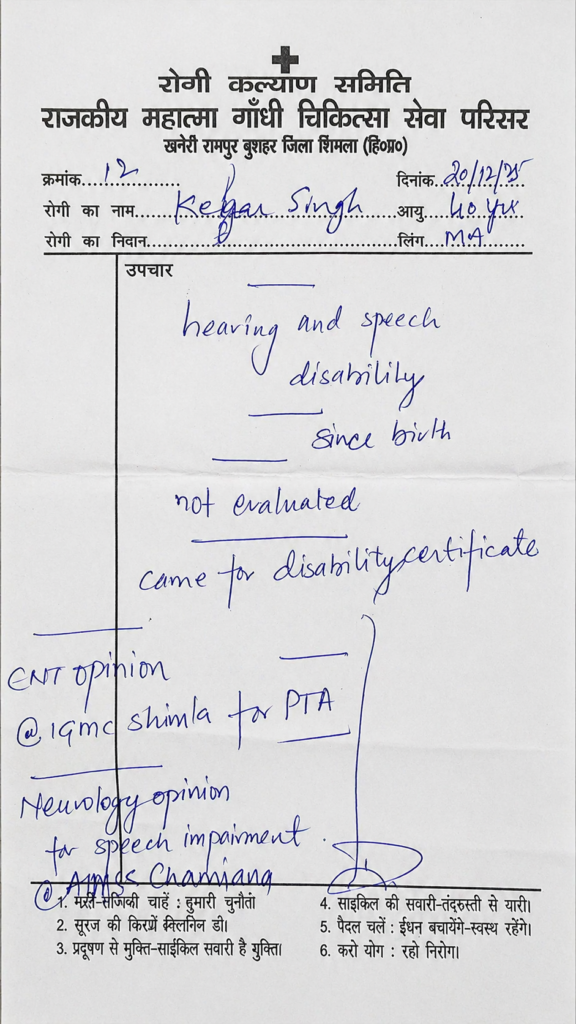 रोगी कल्याण समिति
राजकीय महात्मा गाँधी चिकित्सा सेवा परिसर
खनेरी रामपुर बुशहर जिला शिमला (हि०प्र०)
क्रमांक 12 दिनांक 20/12/25
रोगी का नाम Singh आयु 40 yrs
रोगी का निदान लिंग
उपचार
hearing and speech
disability
since birth
not evaluated
came for disability certificate
ENT opinion
@ IGMC Shimla for PTA
Neurology opinion
for speech impairment.
@ Chamiana
1. चाहें : हुमारी चुनौता
2. सूरज की किरणें डी।
3. प्रदूषण से मुक्ति-साईकिल सवारी है युक्ति।
4. साइकिल की सवारी-तंदरुस्ती से यारी।
5. पैदल चलें : ईधन बचायेंगे-स्वस्थ रहेंगे।
6. करो योग : रहो निरोग।